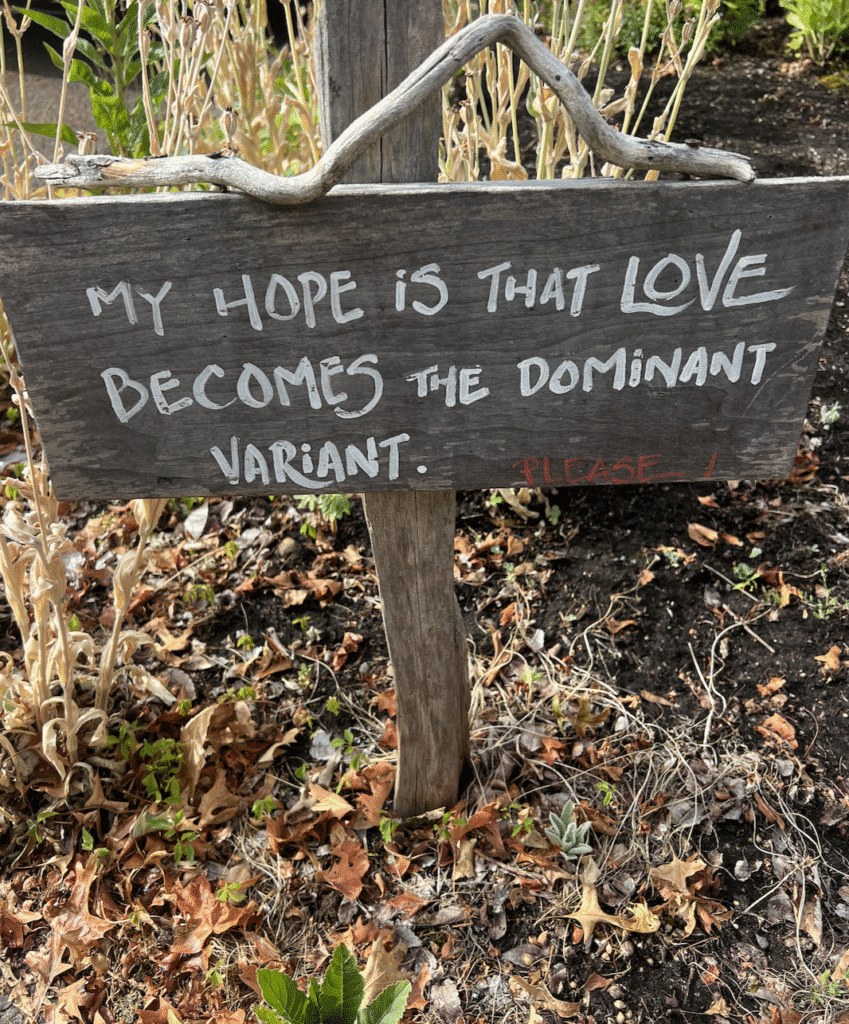 MY HOPE iS THAT LOVE
BECOMES THE DOMiNANT
VARiANT. PLEASE !